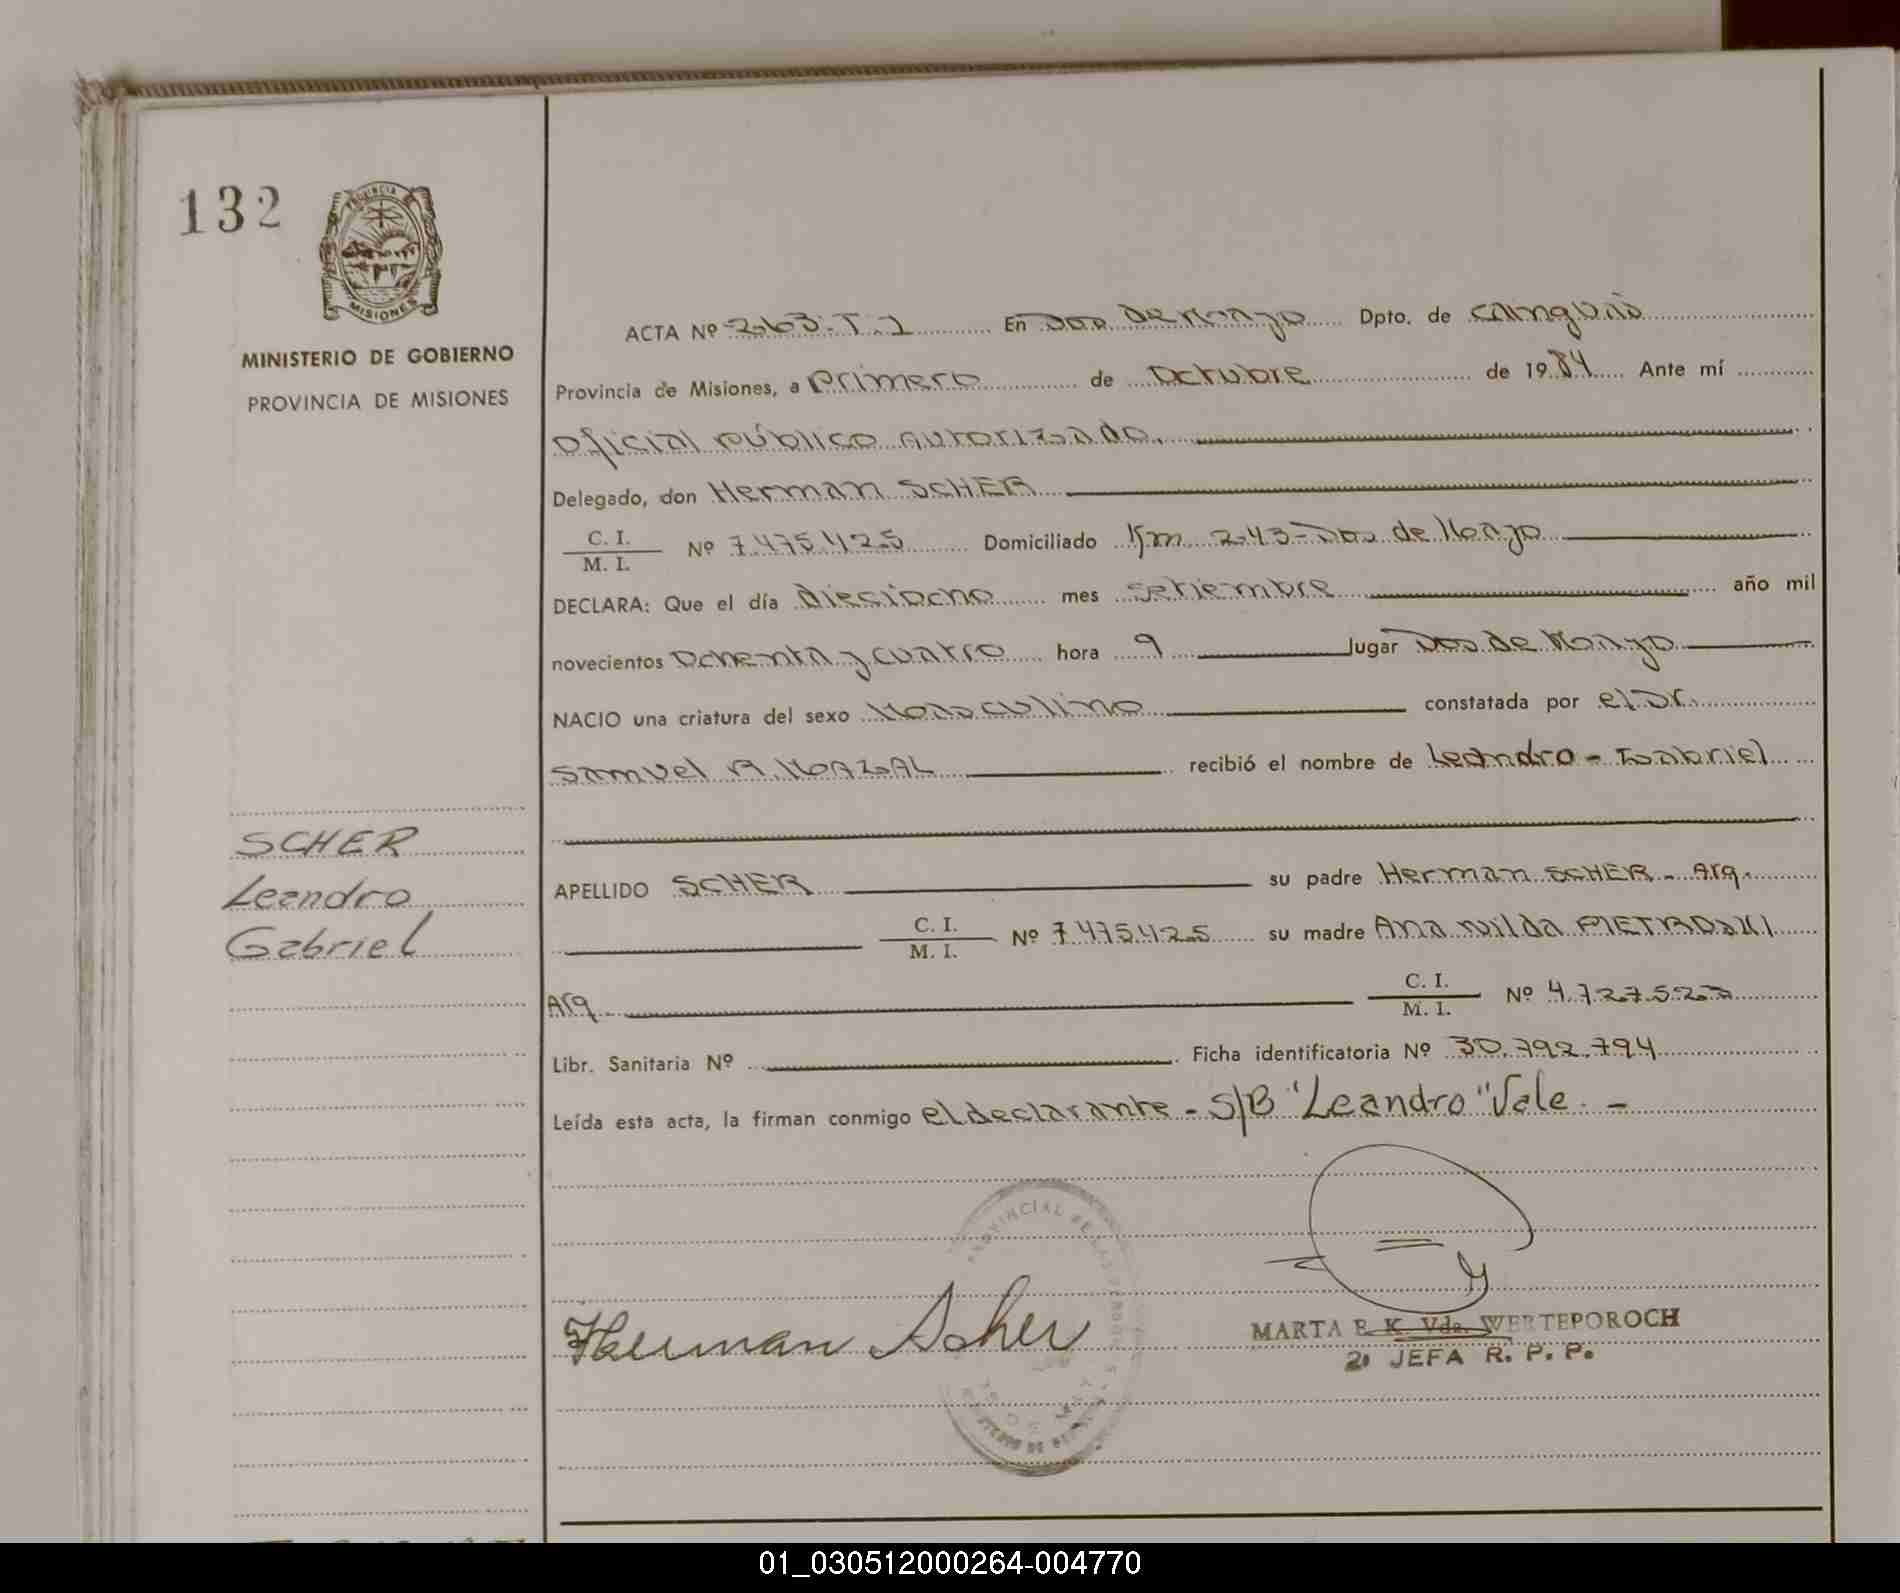 132
PROVINCIA
MISIONES
MINISTERIO DE GOBIERNO
PROVINCIA DE MISIONES
SCHER
Leandro
Gabriel
ACTA Nº 263. T. I En Dos De Mayo Dpto. de Cainguás
Provincia de Misiones, a Primero de Octubre de 1984 Ante mí
Oficial Público Autorizado.
Delegado, don Herman SCHER
C. I.
M. I. Nº 7.475.425 Domiciliado Km 243-Dos de Mayo
DECLARA: Que el día dieciocho mes setiembre año mil
novecientos Ochenta y cuatro hora 9 lugar Dos de Mayo
NACIO una criatura del sexo Masculino constatada por el Dr.
Samuel A. MAZAL recibió el nombre de Leandro - Gabriel
APELLIDO SCHER su padre Herman SCHER - Arg.
C. I.
M. I. Nº 7.475.425 su madre Ana Nilda PIETROSKI
Arg. C. I.
M. I. Nº 4.727.52
Libr. Sanitaria Nº Ficha identificatoria Nº 30.792.794
Leída esta acta, la firman conmigo el declarante - S/B "Leandro" Vale. -
PROVINCIAL
Herman Scher
MARTA E. K. Vda. WERTEPOROCH
2ª JEFA R. P. P.
01_030512000264-004770